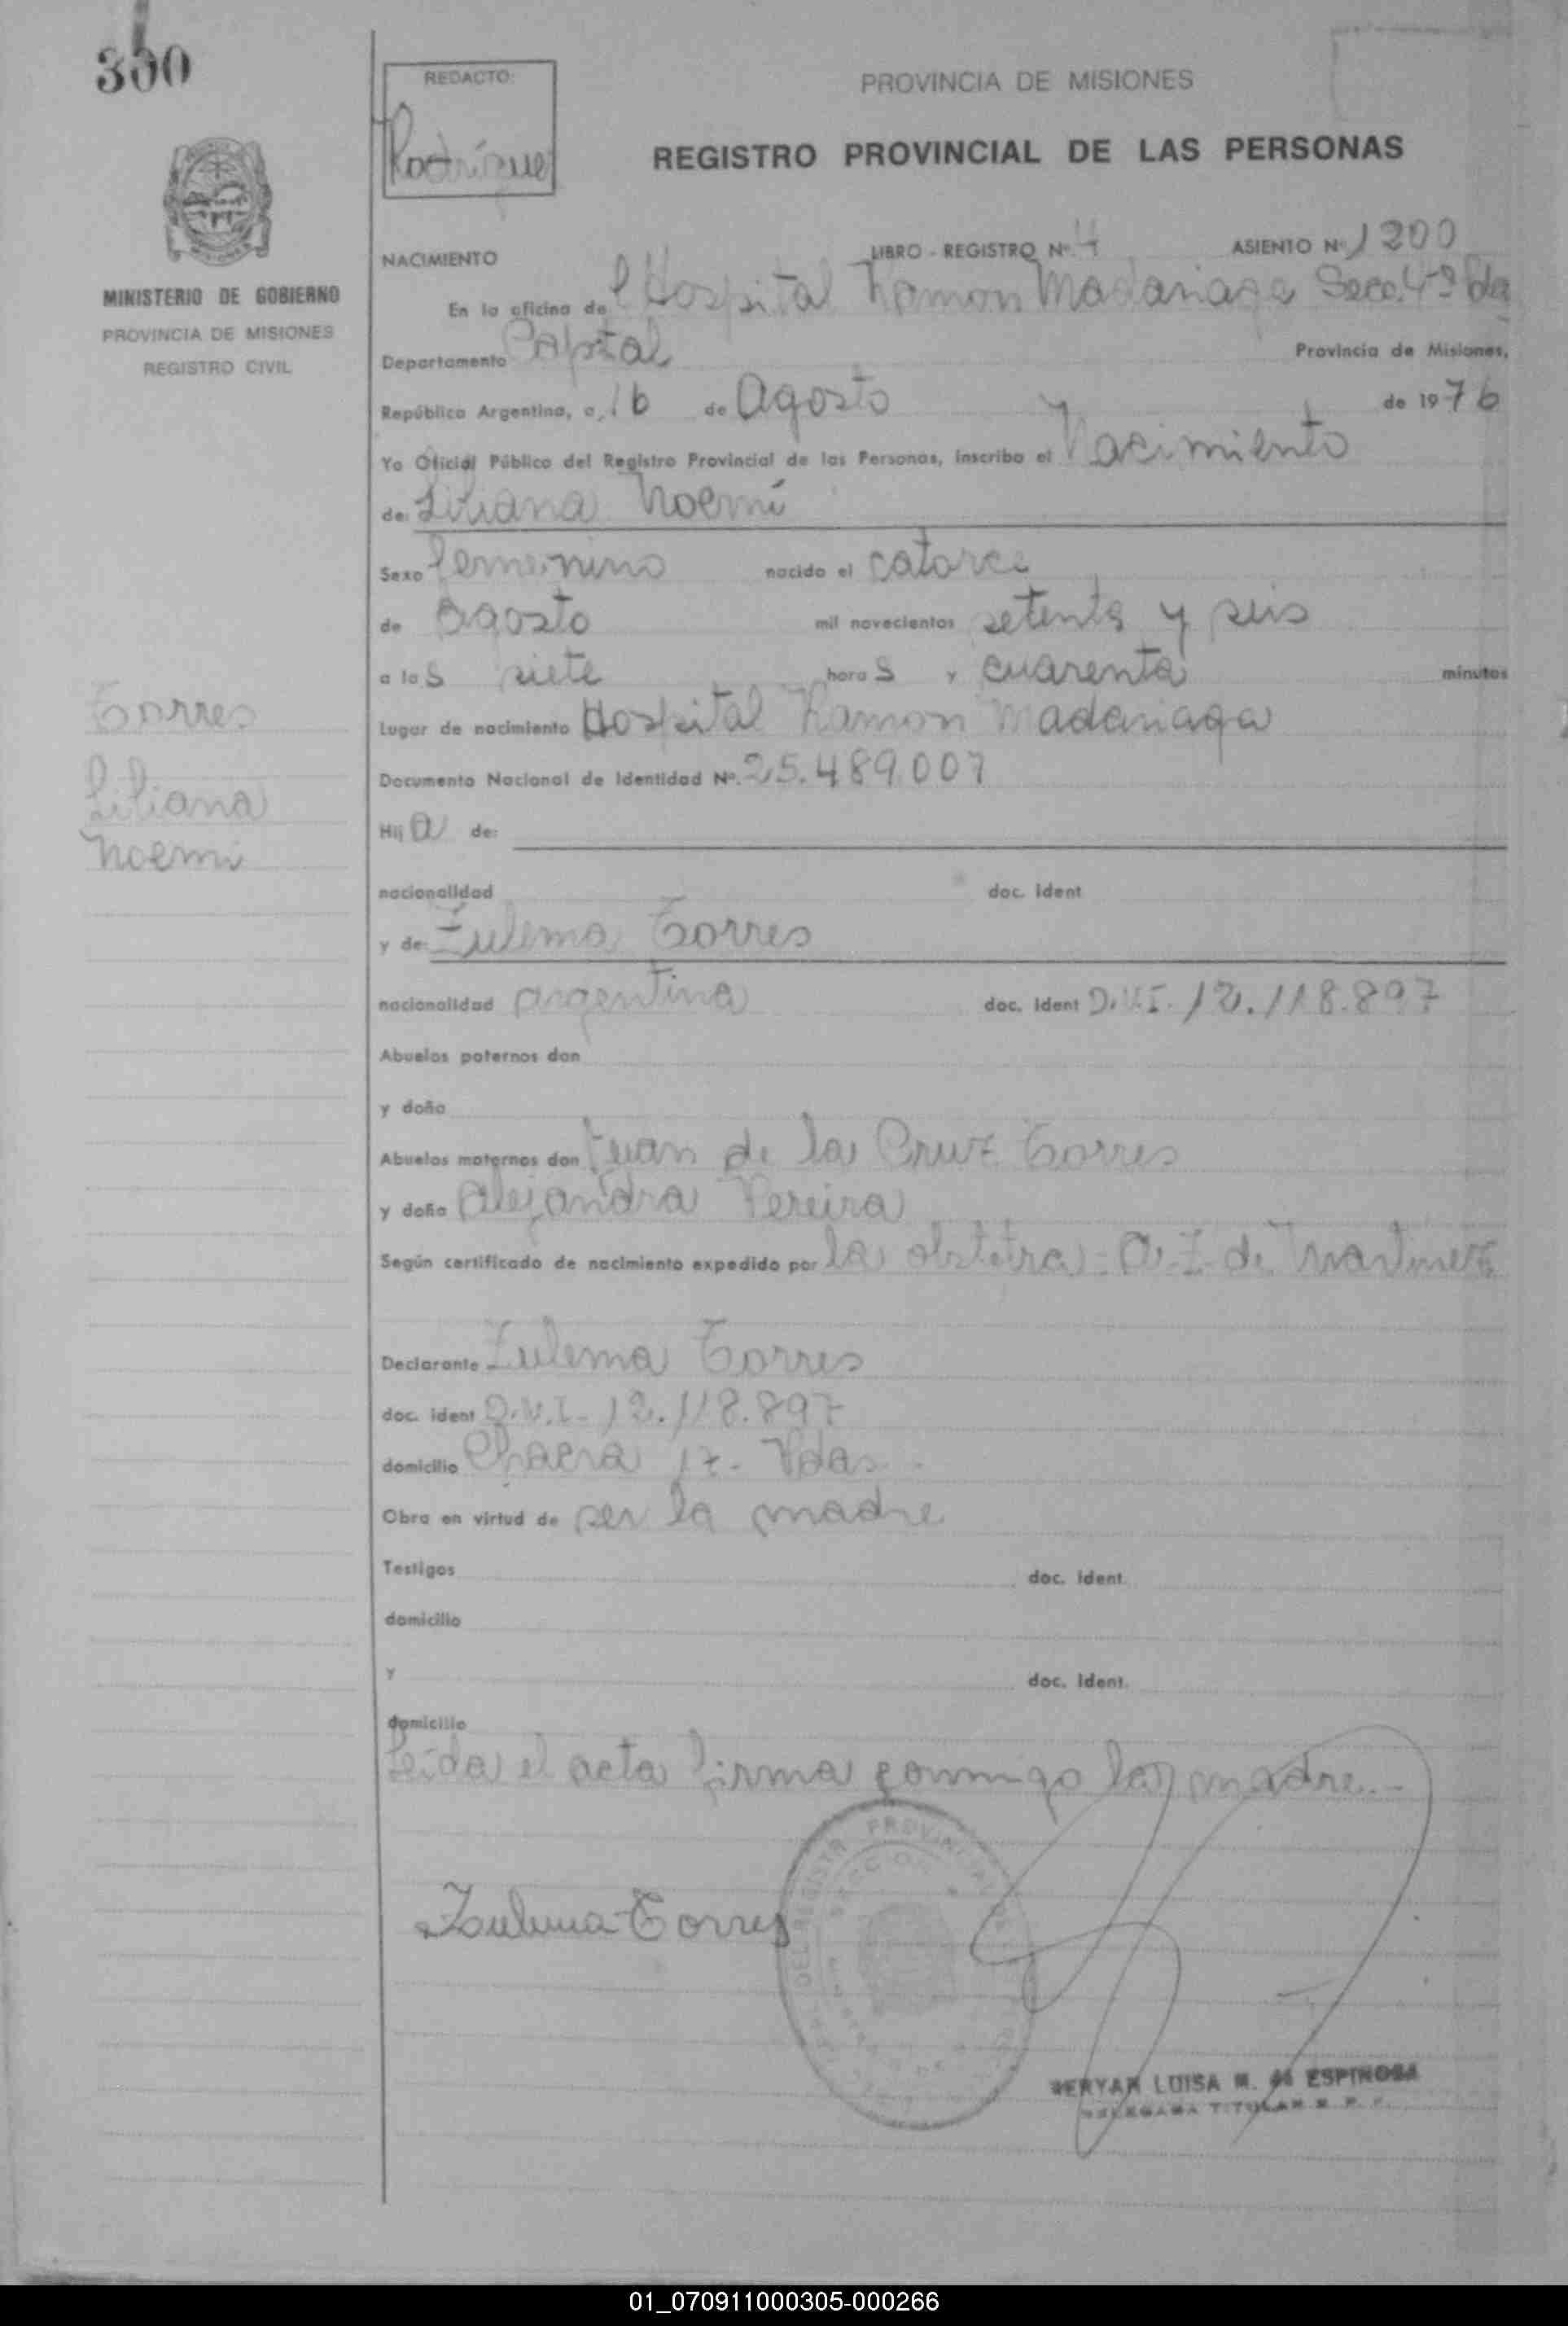 350
REDACTO:
Rodríguez
PROVINCIA DE MISIONES
REGISTRO PROVINCIAL DE LAS PERSONAS
MINISTERIO DE GOBIERNO
PROVINCIA DE MISIONES
REGISTRO CIVIL
NACIMIENTO LIBRO - REGISTRO Nº. 4 ASIENTO Nº. 1200
En la oficina de l Hospital Ramon Madariaga Secc. 4ª Pdas
Departamento Capital Provincia de Misiones,
República Argentina, a, 16 de Agosto de 1976
Yo Oficial Público del Registro Provincial de las Personas, inscribo el Nacimiento
de: Liliana Noemí
Sexo femenino nacido el catorce
de Agosto mil novecientos setenta y seis
a la s siete hora s y cuarenta minutos
Lugar de nacimiento Hospital Ramon Madariaga
Documento Nacional de Identidad Nº. 25.489.007
Torres
Liliana
Noemi
Hij a de:
nacionalidad doc. ident
y de: Zulema Torres
nacionalidad argentina doc. ident D.N.I. 12.118.897
Abuelos paternos don
y doña
Abuelos maternos don Juan de la Cruz Torres
y doña Alejandra Pereira
Según certificado de nacimiento expedido por la obstetra - A. Z. de Martinez
Declarante Zulema Torres
doc. ident D.N.I. 12.118.897
domicilio Chacra 17 - Pdas.
Obra en virtud de ser la madre
Testigos doc. ident.
domicilio
y doc. ident.
domicilio
Leída el acta firma conmigo la madre.-
Zulema Torres
DEL REGISTRO PROVINCIAL
SECCION
LUISA M. de ESPINOSA
DELEGADA TITULAR R. P. P.
01_070911000305-000266